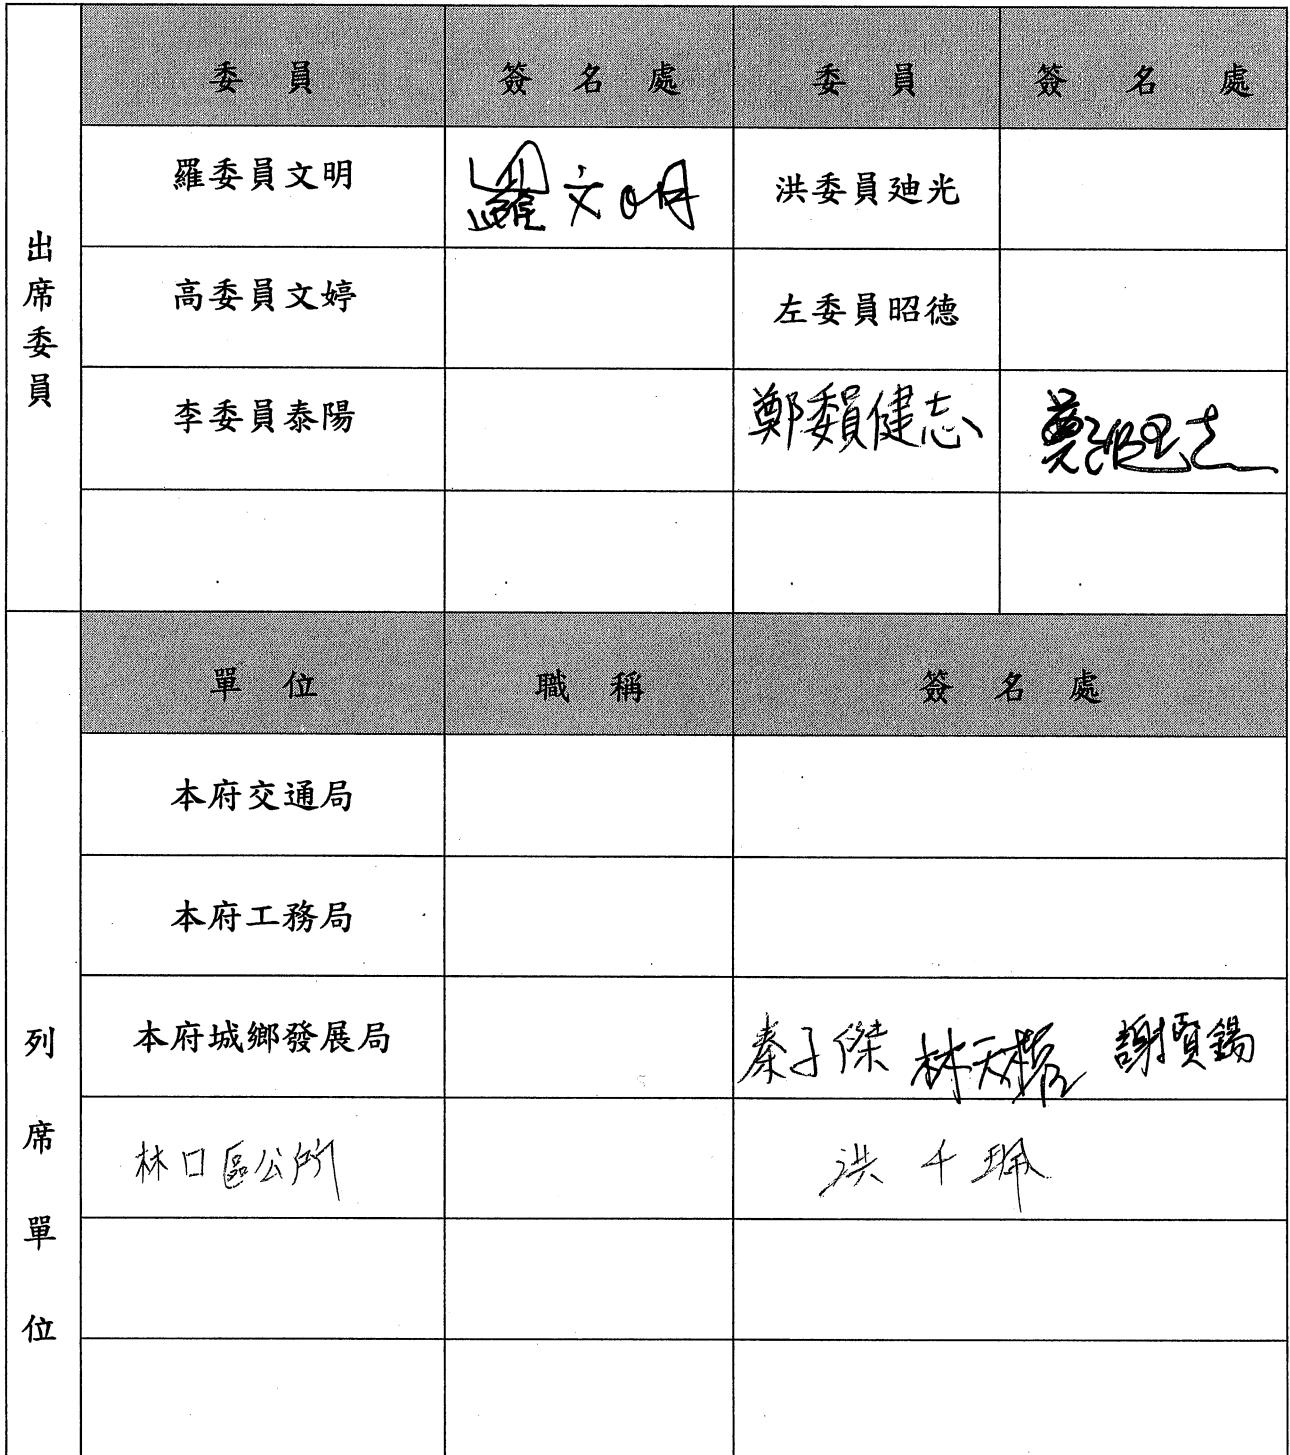 出席委員
委員 簽名處 委員 簽名處
羅委員文明 羅文明 洪委員廸光
高委員文婷 左委員昭德
李委員泰陽 鄭委員健志 鄭健志
列席單位
單位 職稱 簽名處
本府交通局
本府工務局
本府城鄉發展局 秦子傑 謝賢錫
林口區公所 洪千珮